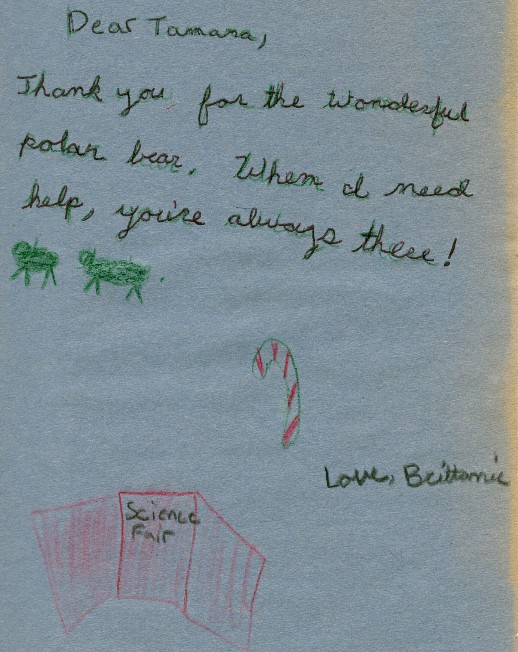 Dear Tamana,
Thank you for the wonderful
polar bear. When I need
help, you're always there!
Love, Brittanie
Science
Fair